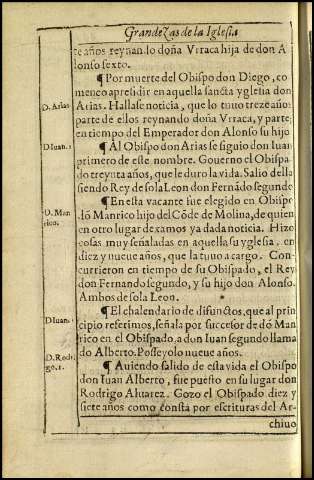 Grandezas de la Iglesia
te años reynando doña Vrraca hija de don A
lonso sexto.
¶ Por muerte del Obispo don Diego, co
menço apresidir en aquella sancta yglesia don
D. Arias
Arias. Hallase noticia, que lo tuuo treze años
parte de ellos reynando doña Vrraca, y parte,
en tiempo del Emperador don Alonso su hijo
D Iuan. 1
¶ Al Obispo don Arias se siguio don Iuan
primero de este nombre. Gouerno el Obispa-
do treynta años, que le duro la vida. Salio della
siendo Rey de sola Leon don Fernādo segundo
¶ En esta vacante fue elegido en Obispo
D. Man
rico.
dō Manrico hijo del Cōde de Molina, de quien
en otro lugar dexamos ya dada noticia. Hizo
cosas muy señaladas en aquella su yglesia, en
diez y nueue años, que la tuuo a cargo. Con-
currieron en tiempo de su Obispado, el Rey
don Fernando segundo, y su hijo don Alonso.
Ambos de sola Leon.
¶ El chalendario de difunctos, que al prin
D Iuan.
cipio referimos, señala por succesor de dō Man
rico en el Obispado, a don Iuan segundo llama
do Alberto. Posseyolo nueue años.
D. Rodri
go. 1.
¶ Auiendo salido de esta vida el Obispo
don Iuan Alberto, fue puesto en su lugar don
Rodrigo Aluarez. Gozo el Obispado diez y
siete años como consta por escrituras del Ar-
chiuo